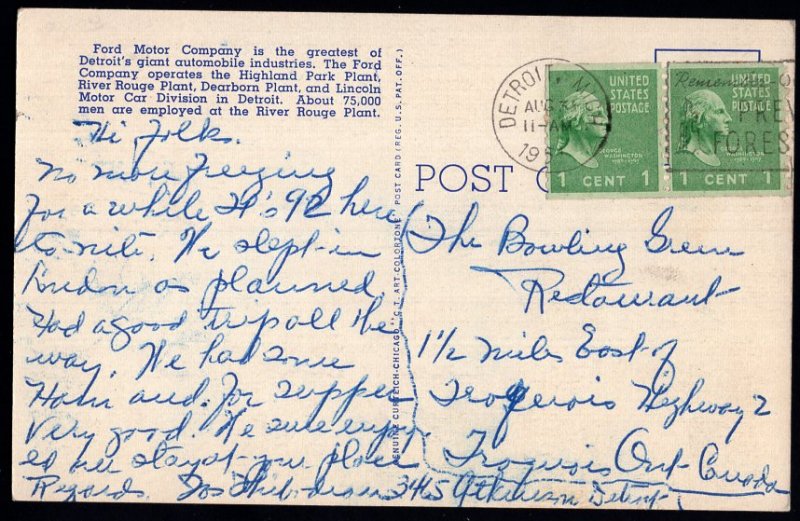 Ford Motor Company is the greatest of
Detroit's giant automobile industries. The Ford
Company operates the Highland Park Plant,
River Rouge Plant, Dearborn Plant, and Lincoln
Motor Car Division in Detroit. About 75,000
men are employed at the River Rouge Plant.
Hi Folks.
No more freezing
for a while It's 92 here
to-nite. We slept in
London as planned
Had a good trip all the
way. We had some
Ham and. for supper
Very good. We sure enjoy
ed our stay at your place
Regards. 3415 Atkinson Detroit
GENUINE CURTEICH-CHICAGO "C.T. ART-COLORTONE" POST CARD (REG. U.S. PAT. OFF.)
POST C
DETROIT MICH
AUG 3
11-AM
195
UNITED
STATES
POSTAGE
GEORGE
WASHINGTON
1789-1797
1 CENT 1
Remember
UNITED
STATES
POSTAGE
PREV
FORES
GEORGE
WASHINGTON
1789-1797
1 CENT 1
The Bowling Green
Restaurant
1 1/2 miles East of
Iroquois Highway 2
Iroquois Ont Canada